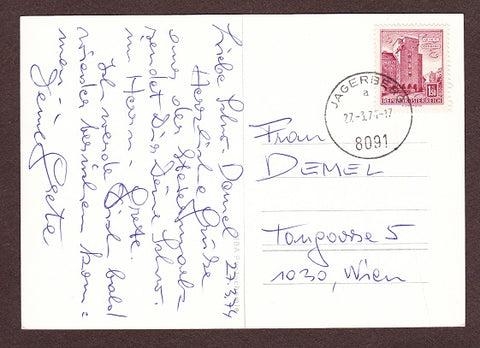 Liebe Schw. Demel 27.3.74
Herzliche Grüße
aus der Steiermark
sendet Dir Deine Schw.
im Herrn: Grete.
Ich werde Dich bald
wieder besuchen kom-
men
Deine Grete
JAGERBERG
a
27.3.74-17
8091
REPUBLIK ÖSTERREICH
Frau
DEMEL
5
1030, Wien